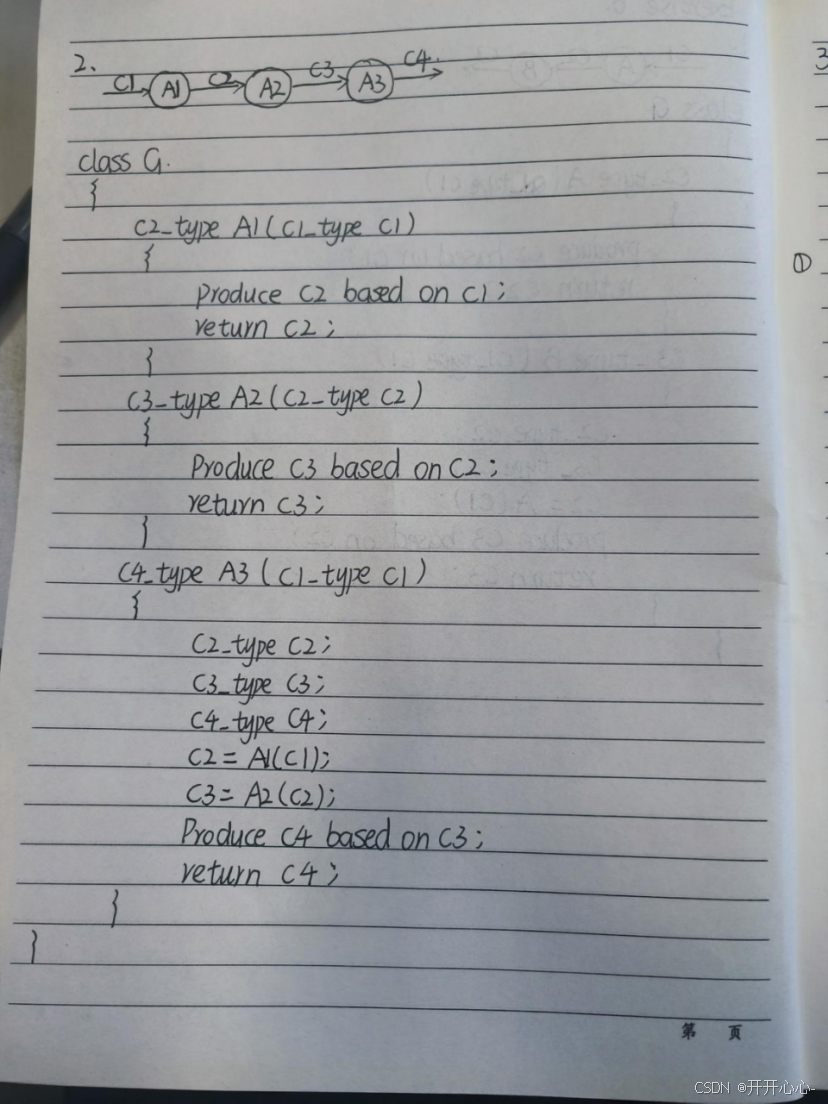 2.
C1 A1 C2 A2 C3 A3 C4
class G
{
C2_type A1(C1_type C1)
{
Produce C2 based on C1;
return C2;
}
C3_type A2(C2_type C2)
{
Produce C3 based on C2;
return C3;
}
C4_type A3(C1_type C1)
{
C2_type C2;
C3_type C3;
C4_type C4;
C2=A1(C1);
C3=A2(C2);
Produce C4 based on C3;
return C4;
}
}
第 页
3
①
CSDN @开开心心-